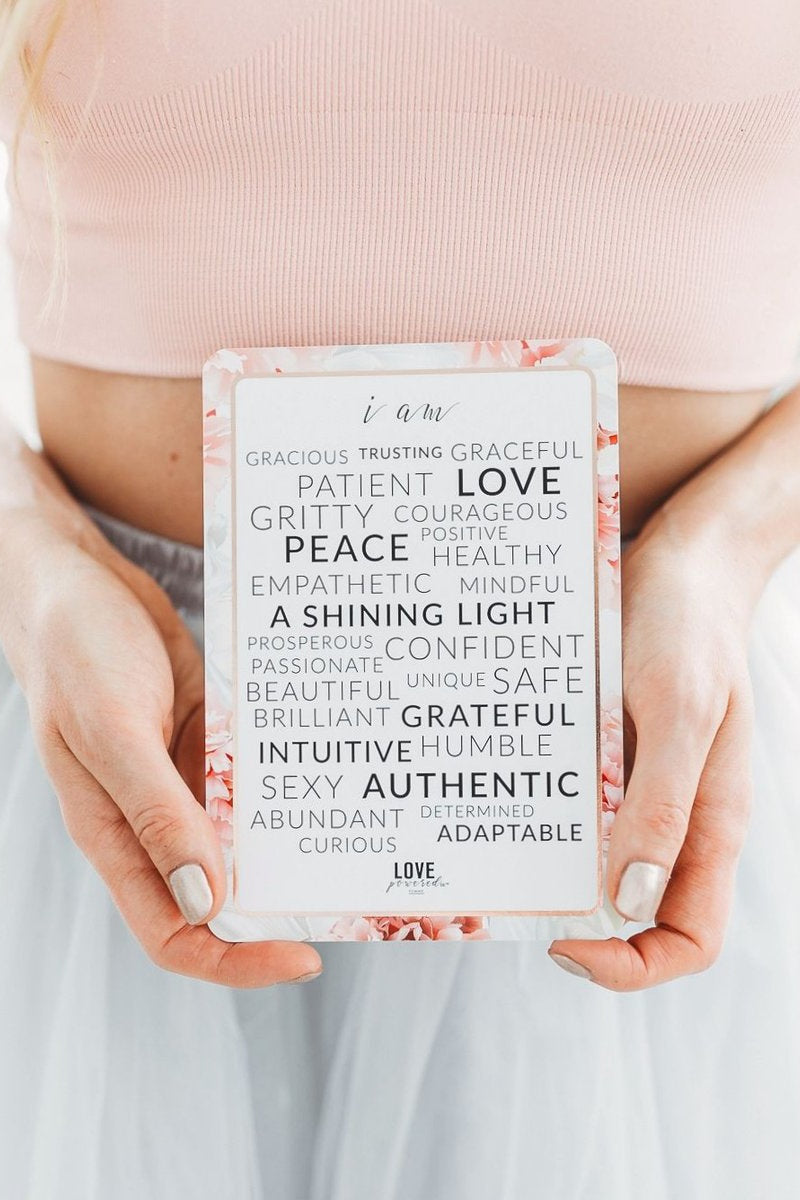 i am
GRACIOUS TRUSTING GRACEFUL
PATIENT LOVE
GRITTY COURAGEOUS
POSITIVE
PEACE HEALTHY
EMPATHETIC MINDFUL
A SHINING LIGHT
PROSPEROUS CONFIDENT
PASSIONATE
BEAUTIFUL UNIQUE SAFE
BRILLIANT GRATEFUL
INTUITIVE HUMBLE
SEXY AUTHENTIC
ABUNDANT DETERMINED
CURIOUS ADAPTABLE
LOVE
powered